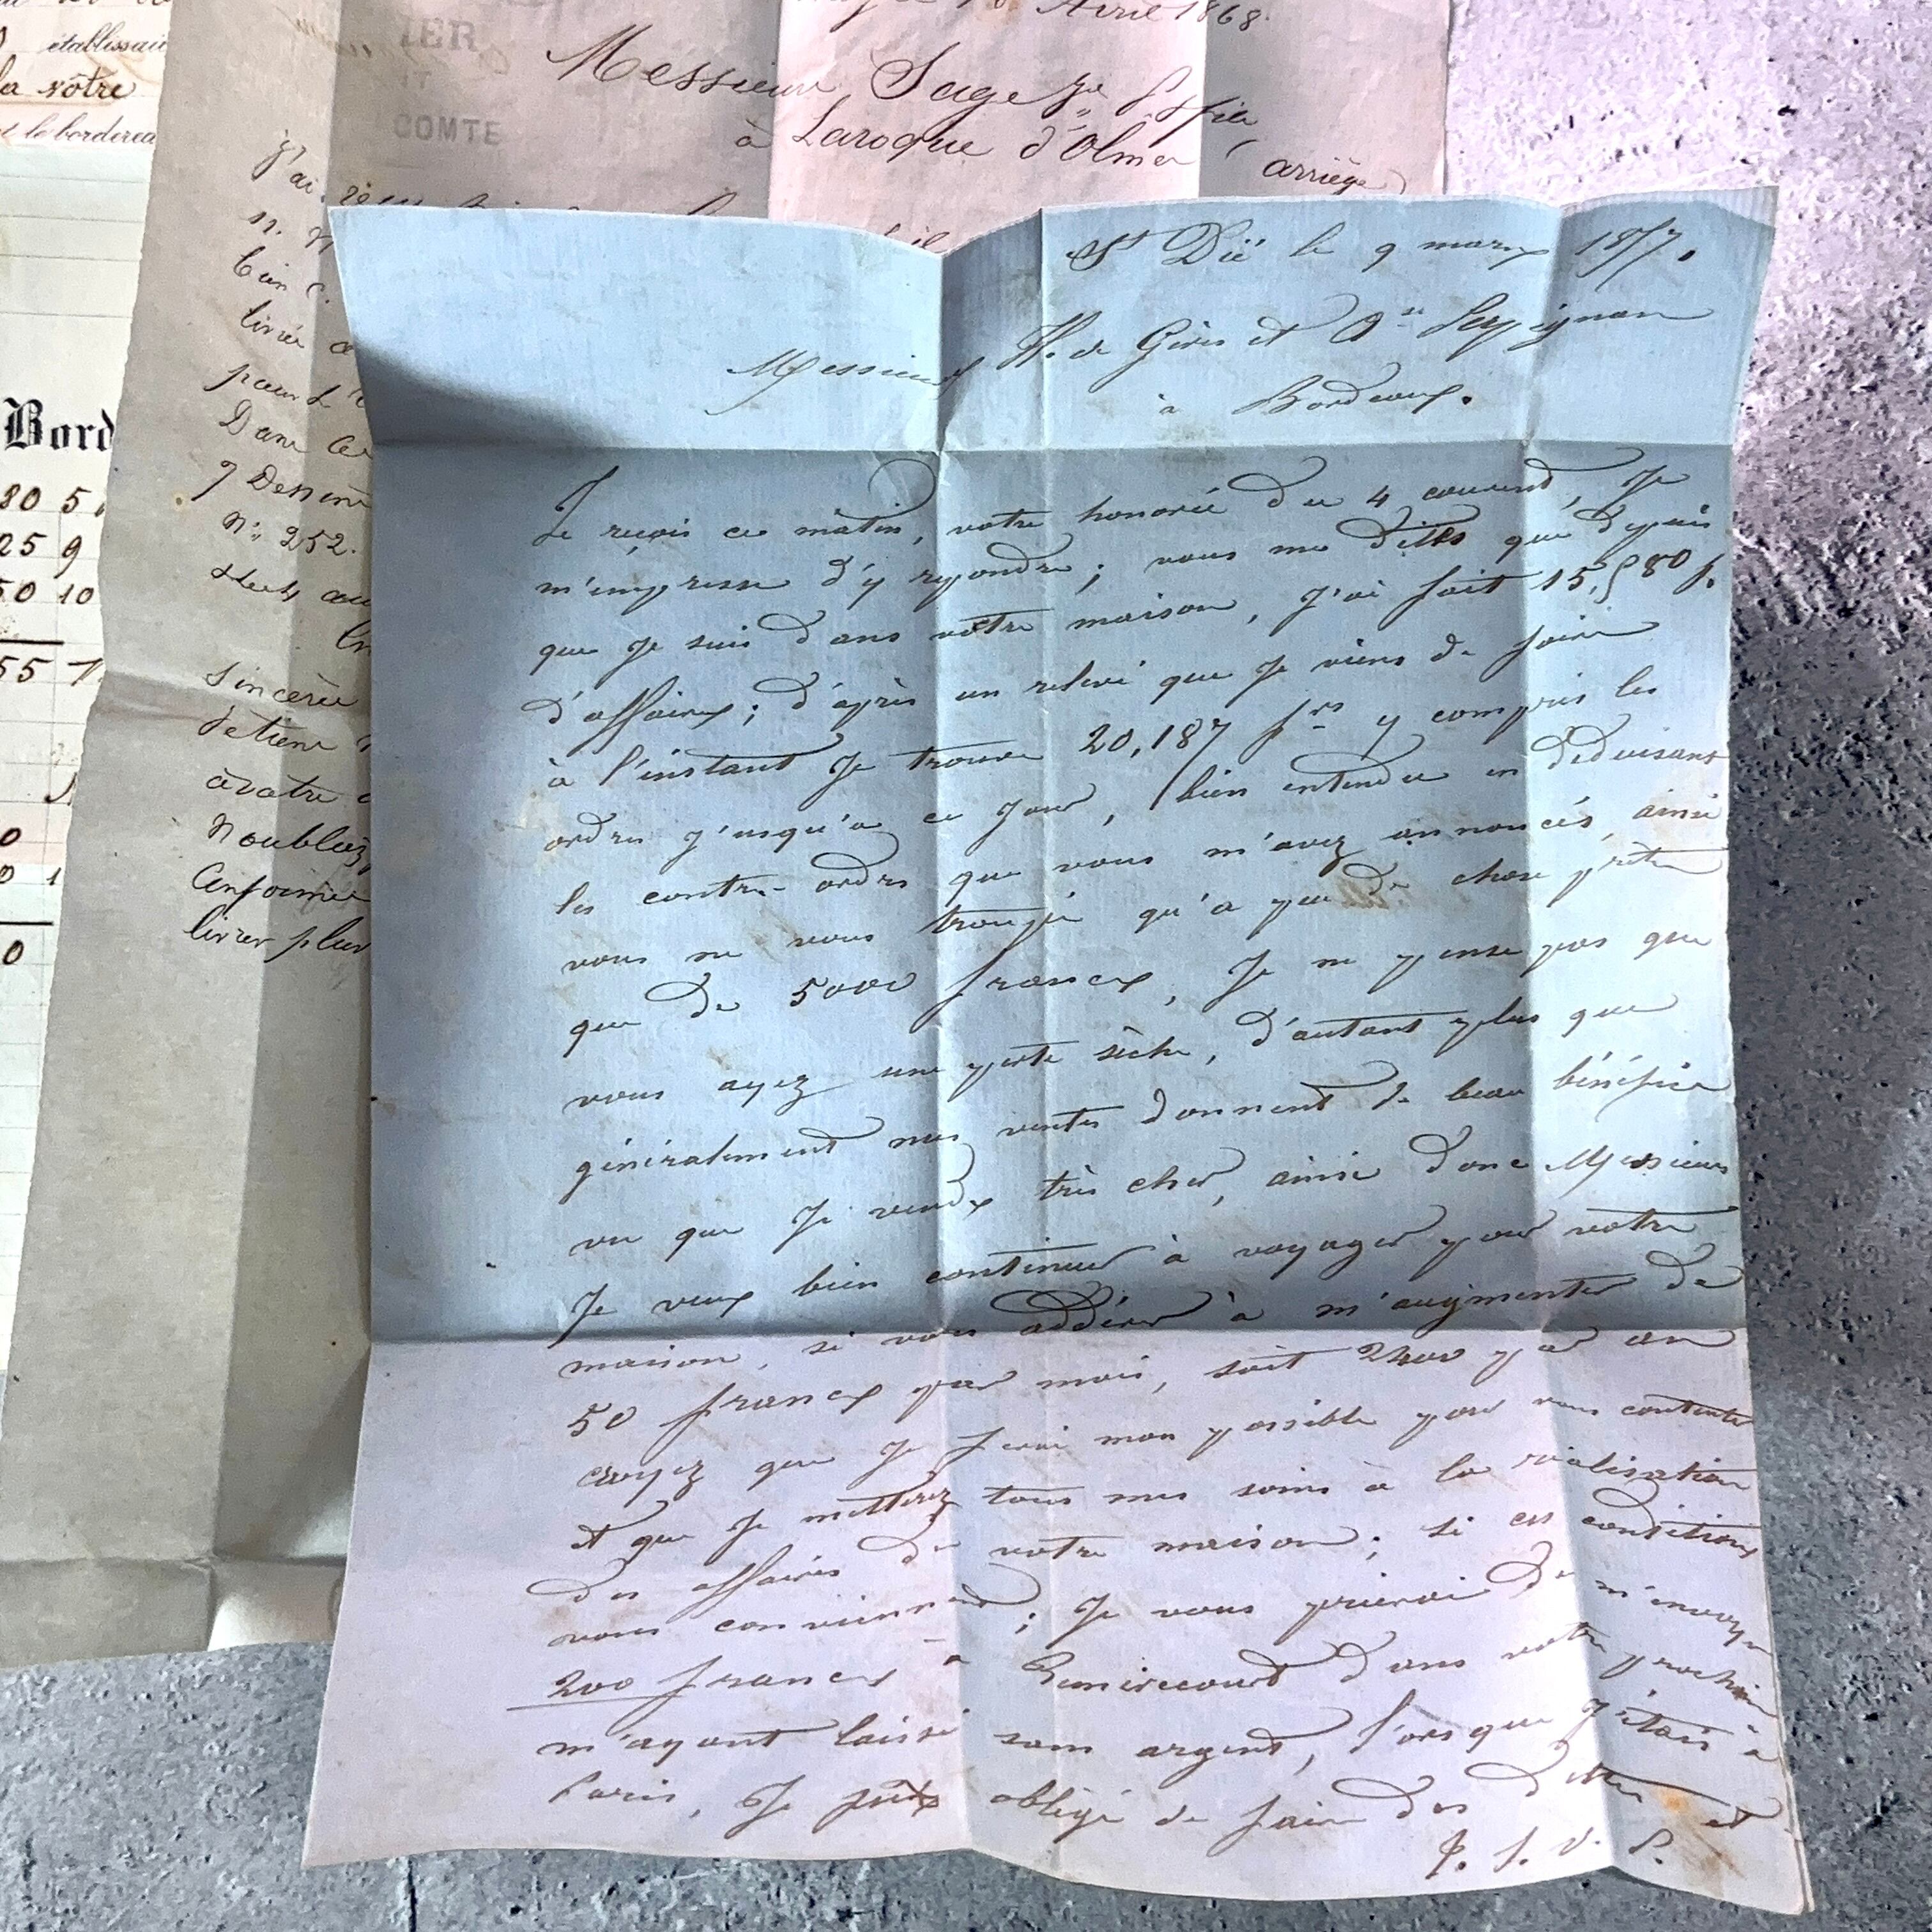 établissait
la vôtre
le borderea
Bord
80 5
25 9
50 10
55
0
0 1
0
IER
COMTE
Avril 1868.
Messieurs Sage
à Laroque d'Olmes (arriège)
J'ai reçu
n.
livrée
pour
Dans
9 Dessins
N° 252.
Sincères
avotre
Noubliez
Conformer
livrer plus
St Dié le 9 marx 1857.
Messieurs H. de Giris et
à Bordeaux.
Je reçois ce matin, votre honorée du 4 courend, Je
m'empresse d'y repondre; vous me dittes que depuis
que Je suis dans votre maison, J'ai fait 15,580 f.
d'affaires; d'après un relevé que Je viens de faire
à l'instant Je trouve 20,187 frs y compris les
ordres j'usqu'a ce Jour, bien entendu en déduisant
les contre-ordres que vous m'avez annoncés, ainsi
vous ne vous trouvé qu'a peu de chose prete
que de 5000 francs, Je ne pense pas que
vous ayez une perte sèche, d'autant plus que
généralement mes ventes donnent de beau bénéfice
vu que Je vends très cher, ainsi donc Messieurs
Je veux bien continuer à voyager pour votre
maison, si vous addérer à m'augmenter de
50 francs par mois, soit 2400 par an
croyez que Je ferai mon possible pour vous contenter
et que Je metterez tous mes soins à la réalisation
des affaires de votre maison; si ces conditions
vous conviennent; Je vous prierai de m'envoyer
200 francs à dans votre prochaine
m'ayant laissé sans argent, l'orsque J'étais à
Paris, Je obligé de faire des dettes et
T. S. V. P.